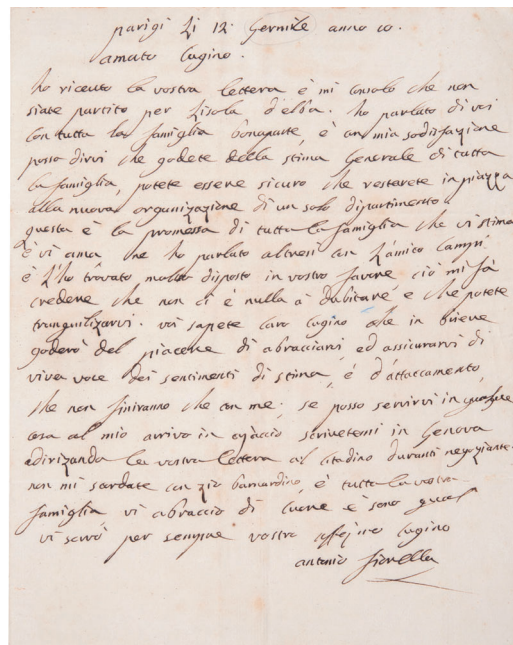 parigi li 12. Germile anno 10.
amato Cugino.
ho riceuto la vostra lettera è mi consolo che non
siate partito per Lisola d'elba. ho parlato di voi
con tutta la famiglia bonaparte, è con mia sodisfazione
posso dirvi che godete della stima Generale di tutta
la famiglia, potete essere sicuro che resterete in piazza
alla nuova organizazione di un solo dipartimento
questa è la promessa di tutta la famiglia che vi stima
è vi ama, ne ho parlato altresi con L'amico campi
è L'ho trovato molto disposto in vostro favore ciò mi fà
credere che non ci è nulla a dubitare e che potete
tranquilizarvi. voi sapete caro cugino che in brieve
goderò del piacere di abraciarvi ed assicurarvi di
viva voce dei sentimenti di stima, è d'attaccamento,
che non finiranno che con me; se posso servirvi in qualque
cosa al mio arrivo in ajaccio scrivetemi in Genova
edirizando la vostra lettera al citadino duranti negoziante.
non mi scordate con zio barnardino, è tutta la vostra
famiglia vi abraccio di Cuore è sono qual
vi sarrò per sempre vostro affe.mo cugino
antonio fiorella